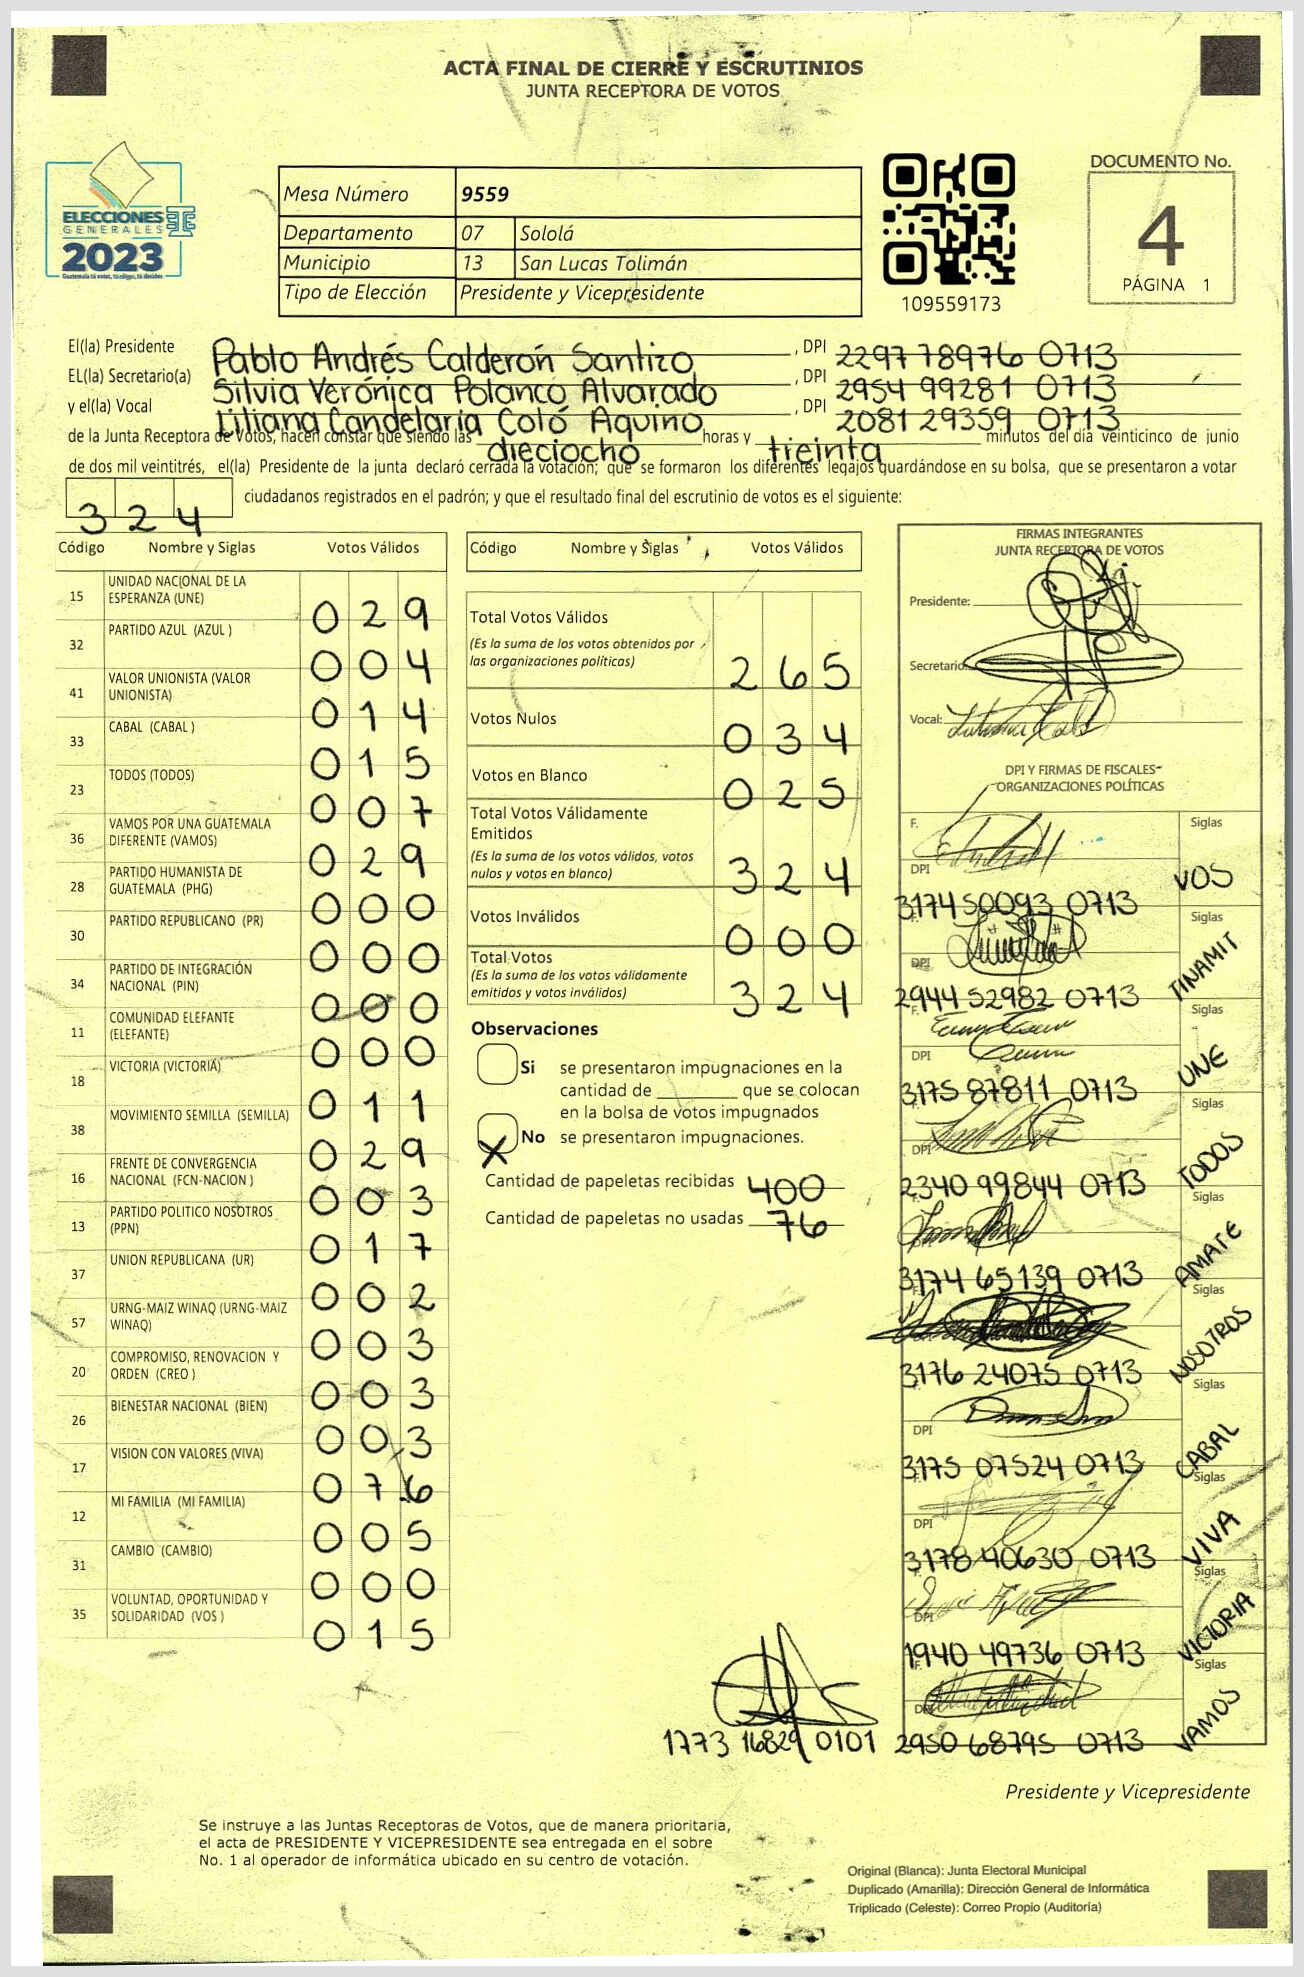 ACTA FINAL DE CIERRE Y ESCRUTINIOS
JUNTA RECEPTORA DE VOTOS
ELECCIONES
GENERALES
2023
Guatemala tú votas, tú eliges, tú decides
Mesa Número 9559
Departamento 07 Sololá
Municipio 13 San Lucas Tolimán
Tipo de Elección Presidente y Vicepresidente
109559173
DOCUMENTO No.
4
PÁGINA 1
El(la) Presidente Pablo Andrés Calderón Santizo , DPI 2297 78976 0713
EL(la) Secretario(a) Silvia Verónica Polanco Alvarado , DPI 2954 99281 0713
y el(la) Vocal Liliana Candelaria Coló Aquino , DPI 2081 29359 0713
de la Junta Receptora de Votos, hacen constar que siendo las dieciocho horas y treinta minutos del día veinticinco de junio
de dos mil veintitrés, el(la) Presidente de la junta declaró cerrada la votación; que se formaron los diferentes legajos guardándose en su bolsa, que se presentaron a votar
324 ciudadanos registrados en el padrón; y que el resultado final del escrutinio de votos es el siguiente:
Código Nombre y Siglas Votos Válidos
15 UNIDAD NACIONAL DE LA ESPERANZA (UNE) 029
32 PARTIDO AZUL (AZUL ) 004
41 VALOR UNIONISTA (VALOR UNIONISTA) 014
33 CABAL (CABAL ) 015
23 TODOS (TODOS) 007
36 VAMOS POR UNA GUATEMALA DIFERENTE (VAMOS) 029
28 PARTIDO HUMANISTA DE GUATEMALA (PHG) 000
30 PARTIDO REPUBLICANO (PR) 000
34 PARTIDO DE INTEGRACIÓN NACIONAL (PIN) 000
11 COMUNIDAD ELEFANTE (ELEFANTE) 000
18 VICTORIA (VICTORIA) 011
38 MOVIMIENTO SEMILLA (SEMILLA) 029
16 FRENTE DE CONVERGENCIA NACIONAL (FCN-NACION ) 003
13 PARTIDO POLITICO NOSOTROS (PPN) 017
37 UNION REPUBLICANA (UR) 002
57 URNG-MAIZ WINAQ (URNG-MAIZ WINAQ) 003
20 COMPROMISO, RENOVACION Y ORDEN (CREO ) 003
26 BIENESTAR NACIONAL (BIEN) 003
17 VISION CON VALORES (VIVA) 076
12 MI FAMILIA (MI FAMILIA) 005
31 CAMBIO (CAMBIO) 000
35 VOLUNTAD, OPORTUNIDAD Y SOLIDARIDAD (VOS ) 015
Código Nombre y Siglas Votos Válidos
Total Votos Válidos
(Es la suma de los votos obtenidos por
las organizaciones políticas) 265
Votos Nulos 034
Votos en Blanco 025
Total Votos Válidamente
Emitidos
(Es la suma de los votos válidos, votos
nulos y votos en blanco) 324
Votos Inválidos 000
Total Votos
(Es la suma de los votos válidamente
emitidos y votos inválidos) 324
Observaciones
Si se presentaron impugnaciones en la
cantidad de ________ que se colocan
en la bolsa de votos impugnados
X No se presentaron impugnaciones.
Cantidad de papeletas recibidas 400
Cantidad de papeletas no usadas 76
1773 16829 0101
FIRMAS INTEGRANTES
JUNTA RECEPTORA DE VOTOS
Presidente:
Secretario:
Vocal:
DPI Y FIRMAS DE FISCALES
ORGANIZACIONES POLÍTICAS
F. Siglas
DPI 3174 50093 0713 VOS
F. Siglas
DPI 2944 52982 0713 TINAMIT
F. Siglas
DPI 3175 87811 0713 UNE
Siglas
DPI 2340 99844 0713 TODOS
Siglas
DPI 3174 65139 0713 AMATE
F. Siglas
3176 24075 0713 NOSOTROS
Siglas
DPI 3175 07524 0713 CABAL
F. Siglas
DPI 3178 40630 0713 VIVA
F. Siglas
DPI 1940 49736 0713 VICTORIA
F. Siglas
DPI 2950 68795 0713 VAMOS
Presidente y Vicepresidente
Se instruye a las Juntas Receptoras de Votos, que de manera prioritaria,
el acta de PRESIDENTE Y VICEPRESIDENTE sea entregada en el sobre
No. 1 al operador de informática ubicado en su centro de votación.
Original (Blanca): Junta Electoral Municipal
Duplicado (Amarilla): Dirección General de Informática
Triplicado (Celeste): Correo Propio (Auditoría)